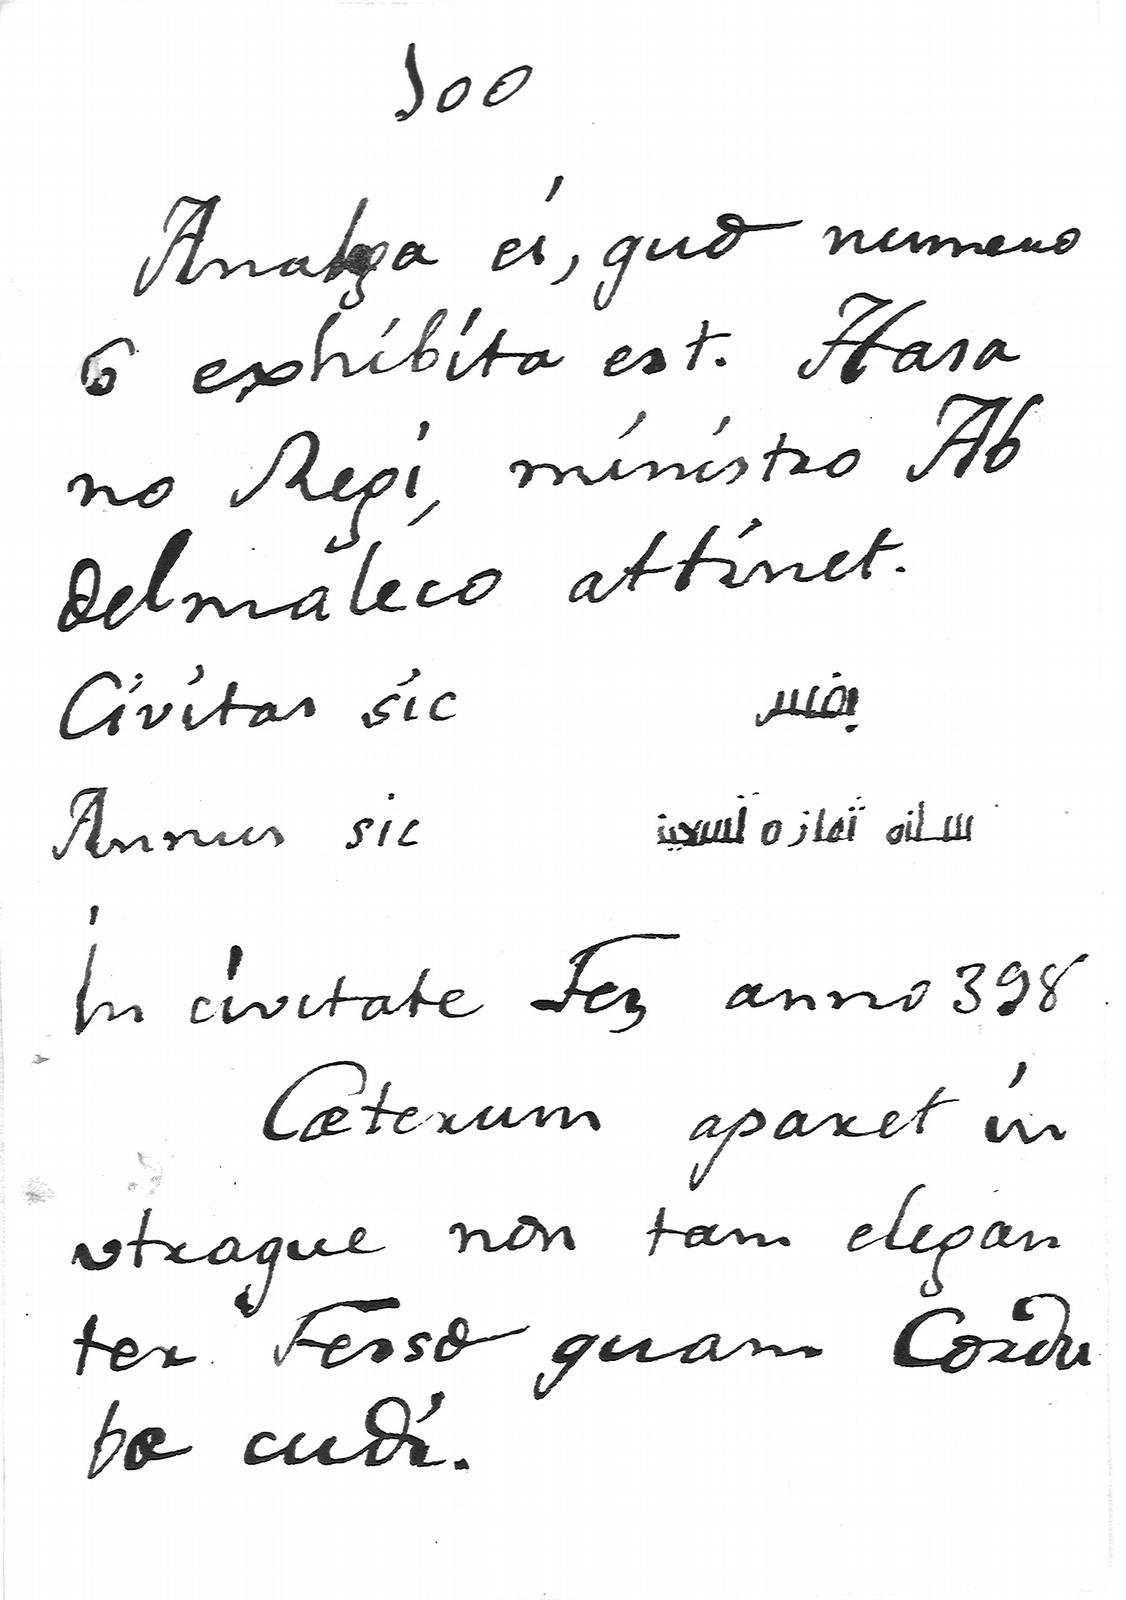 100
ei, qud numero
6 exhibita est. Hasa
no Regi, ministro Ab
delmaleco attinet.
Civitas sic بفس
Annus sic
In civitate Fez anno 398
Cæterum aparet in
vtraque non tam elegan
ter quam Cordu
bæ cudi.